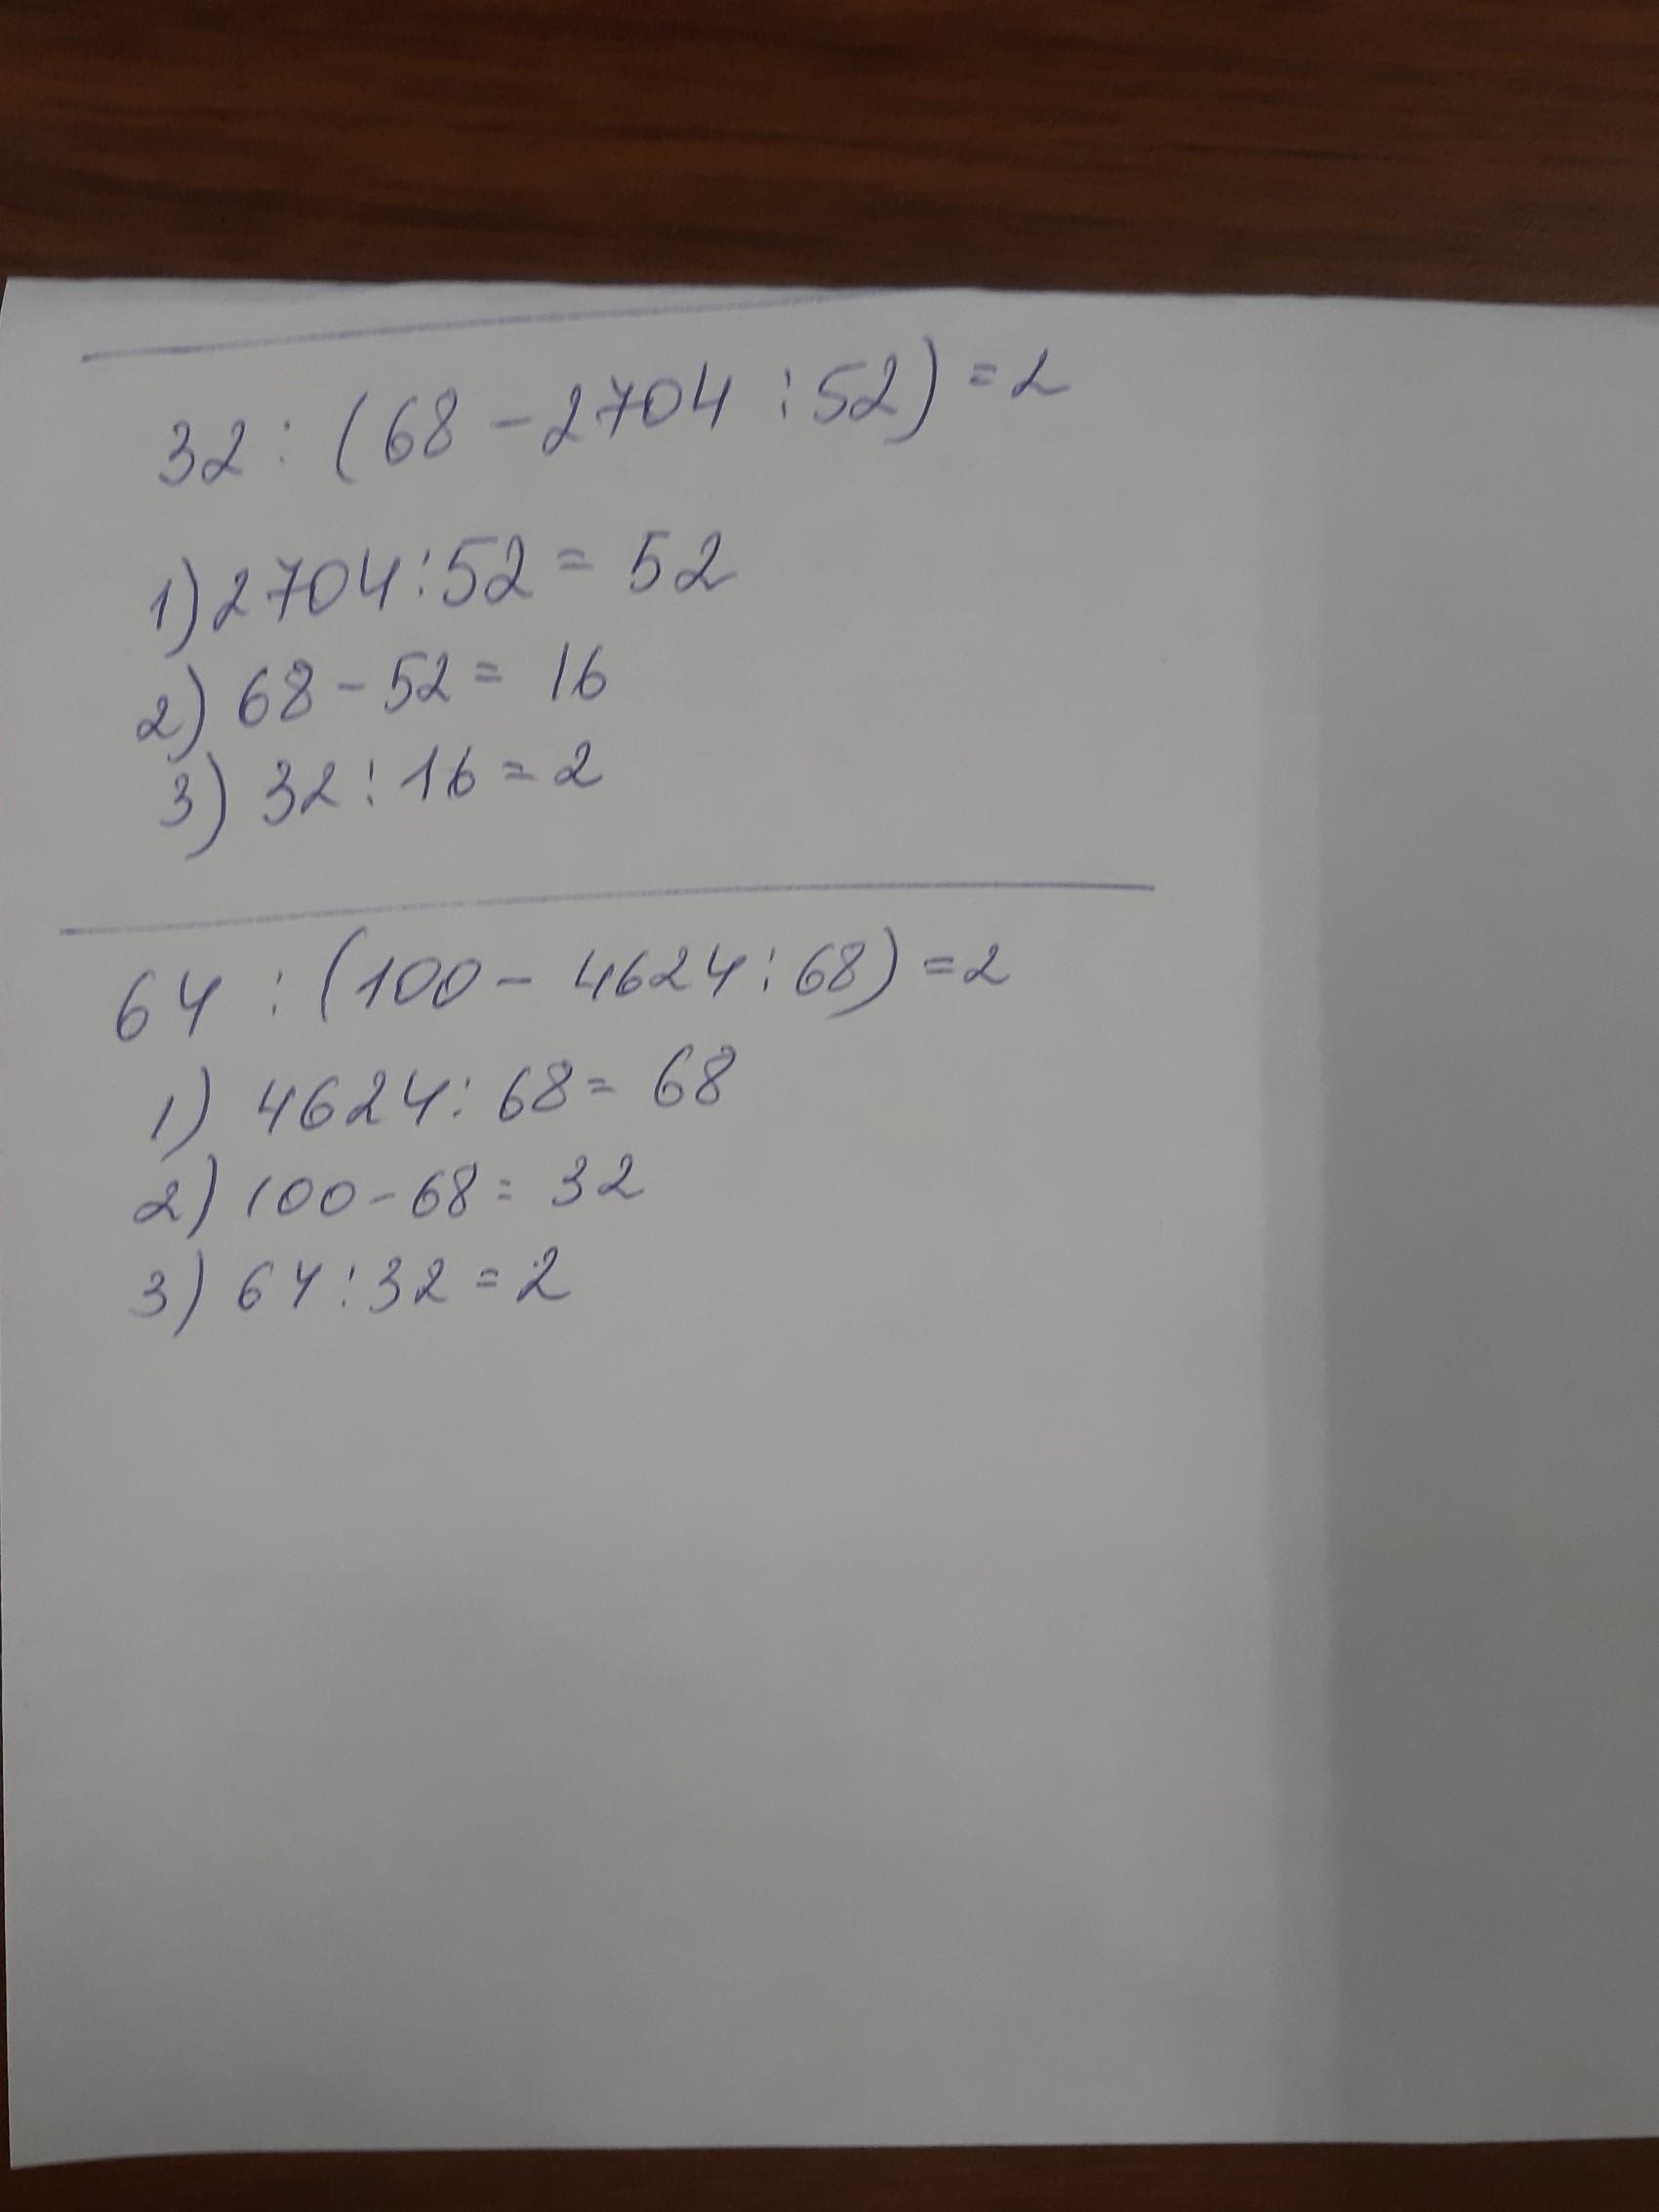 32 : (68 - 2704 : 52) = 2
1) 2704 : 52 = 52
2) 68 - 52 = 16
3) 32 : 16 = 2
64 : (100 - 4624 : 68) = 2
1) 4624 : 68 = 68
2) 100 - 68 = 32
3) 64 : 32 = 2